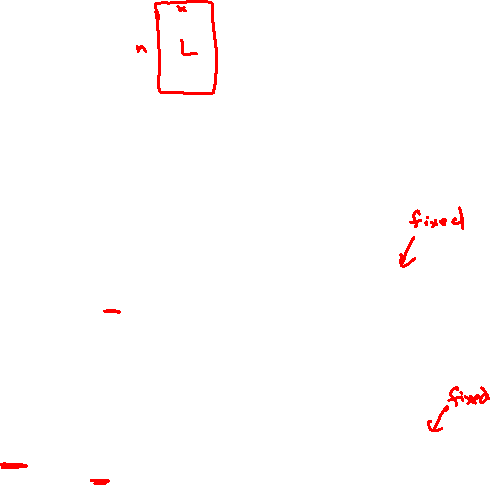 x
n L
fixed
fixed